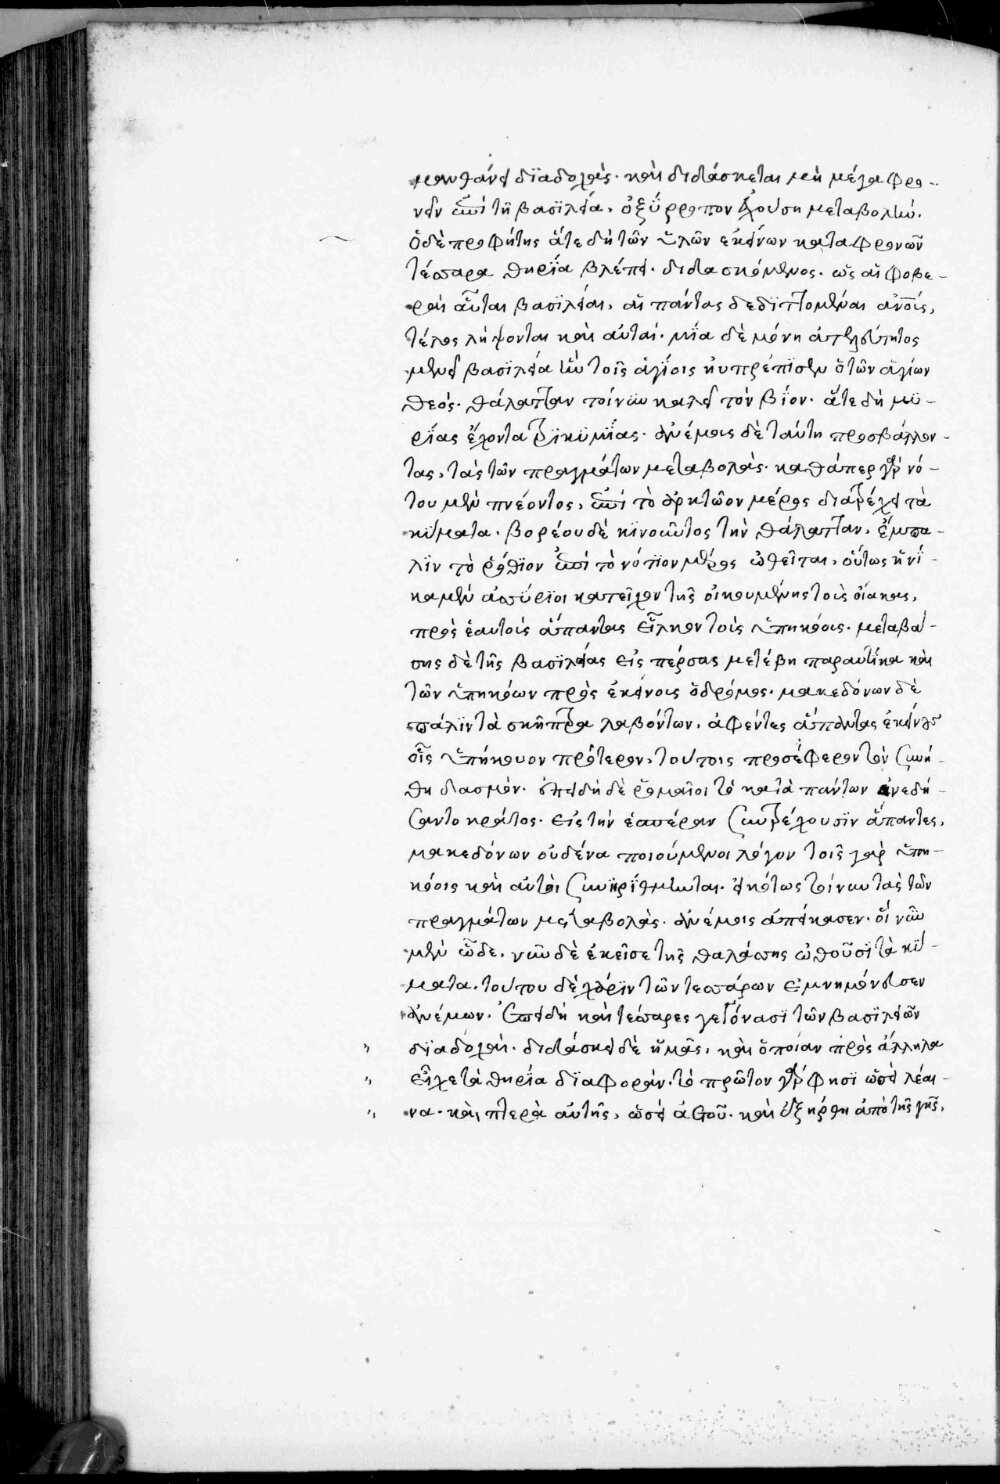 μανθάνει διαδοχάς· καὶ διδάσκεται μὴ μέγα φρο-
νεῖν ἐπὶ τῇ βασιλεία, ὀξύρροπον ἐχούση μεταβολήν.
ὁ δὲ προφήτης ἅτε δὴ τῶν ὑλῶν ἐκείνων καταφρονῶν
τέσσαρα θηρία βλέπει· διδασκόμενος· ὡς αἱ φοβε-
ραὶ αὗται βασιλεῖαι, αἱ πάντας δεδιττόμεναι ἀνοὺς,
τέλος λήψονται καὶ αὐταί· μία δὲ μόνη ἀτελεύτητος
μένει βασιλεία ἣν τοῖς ἁγίοις ηὐπρέπισεν ὁ τῶν ἁγίων
θεός· θάλατταν τοίνυν καλεῖ τὸν βίον· ἅτε δὴ μυ-
ρίας ἔχοντα τρικυμίας· ἀνέμους δὲ ταύτη προσβάλλον-
τας, τὰς τῶν πραγμάτων μεταβολάς· καθάπερ γὰρ νό-
του μὲν πνέοντος, ἐπὶ τὸ ἀρκτῶον μέρος διατρέχει τὰ
κύματα· βορέου δὲ κινοῦντος τὴν θάλατταν, ἔμπα-
λιν τὸ ῥόθιον ἐπὶ τὸ νότιον μέρος ὠθεῖται, οὕτως ἡνί-
κα μὲν ἀσσύριοι κατεῖχον τῆς οἰκουμένης τοὺς οἴακας,
πρὸς ἑαυτοὺς ἅπαντας εἷλκον τοὺς ὑπηκόους· μεταβά-
σης δὲ τῆς βασιλείας εἰς πέρσας μετέβη παραυτίκα καὶ
τῶν ὑπηκόων πρὸς ἐκείνους ὁ δρόμος· μακεδόνων δὲ
πάλιν τὰ σκῆπτρα λαβόντων, ἀφέντες ἅπαντες ἐκείνους
οἷς ὑπήκουον πρότερον, τούτοις προσέφερον τὸν συνή-
θη δασμόν· ἐπειδὴ δὲ ῥωμαῖοι τὸ κατὰ πάντων ἀνεδή-
σαντο κράτος· εἰς τὴν ἑσπέραν συντρέχουσιν ἅπαντες,
μακεδόνων οὐδένα ποιούμενοι λόγον τοῖς γὰρ ὑπη-
κόοις καὶ αὐτοὶ συνηρίθμηνται· εἰκότως τοίνυν τὰς τῶν
πραγμάτων μεταβολὰς· ἀνέμοις ἀπείκασεν· οἳ νῦν
μὲν ὧδε, νῦν δὲ ἐκεῖσε τῆς θαλάσσης ὠθοῦσι τὰ κύ-
ματα· τούτου δὲ χάριν τῶν τεσσάρων ἐμνημόνευσεν
ἀνέμων· ἐπειδὴ καὶ τέσσαρες γεγόνασι τῶν βασιλειῶν
διαδοχαί· διδάσκει δὲ ἡμᾶς, καὶ ὁποίαν πρὸς ἄλληλα
εἶχε τὰ θηρία διαφοράν· τὸ πρῶτον γάρ φησι ὡσεὶ λέαι-
να· καὶ πτερὰ αὐτῆς, ὡσεὶ ἀετοῦ· καὶ ἐξήρθη ἀπὸ τῆς γῆς,